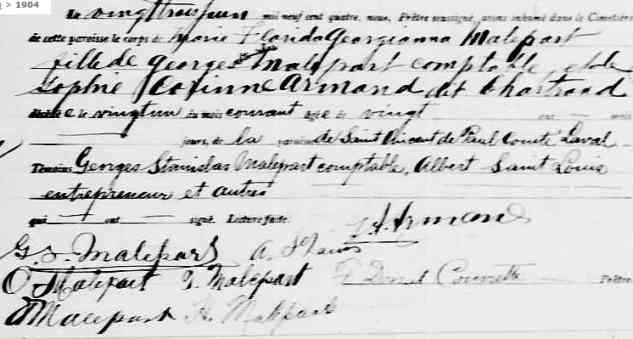 > 1904
Le vingt trois juin mil neuf cent quatre, nous, Prêtre soussigné, avons inhumé dans le Cimetière
de cette paroisse le corps de Marie Florida Georgianna Malepart
fille de Georges Malepart comptable et de
Sophie Corinne Armand dit Chartrand
décédée le vingt un du mois courant âgée de vingt ans mois
jours, de la paroisse de Saint Vincent de Paul Comté Laval
Témoins Georges Stanislas Malepart comptable, Albert Saint Louis
entrepreneur et autres
qui ont signé. Lecture faite.
Armand
G. S. Malepart A. St Louis
O Malepart G. Malepart Prêtre
Malepart H. Malepart